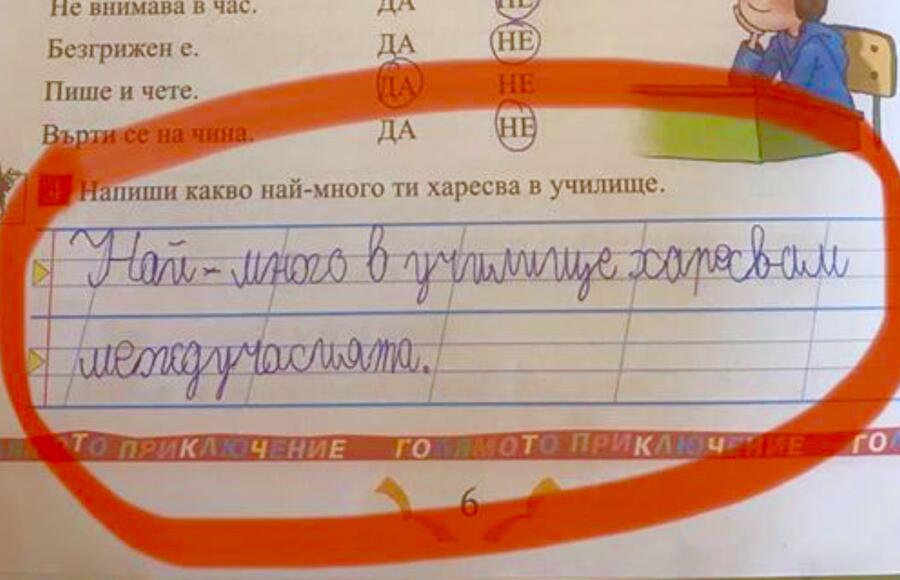 Не внимава в час. ДА НЕ
Безгрижен е. ДА НЕ
Пише и чете. ДА НЕ
Върти се на чина. ДА НЕ
Напиши какво най-много ти харесва в училище.
Най-много в училище харесвам
междучасията.
ГОЛЯМОТО ПРИКЛЮЧЕНИЕ ГОЛЯМОТО ПРИКЛЮЧЕНИЕ
6